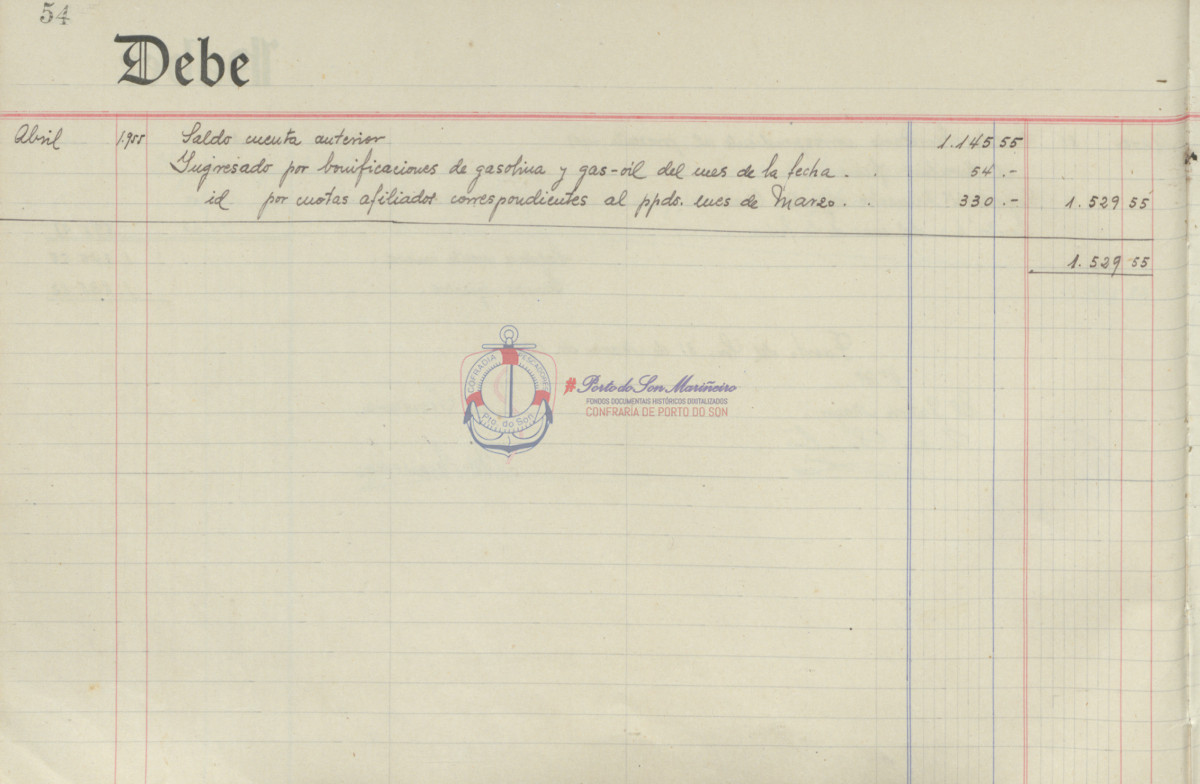 54
Debe
Abril 1.955 Saldo cuenta anterior 1.145 55
Ingresado por bonificaciones de gasolina y gas-oil del mes de la fecha . . 54 .-
id por cuotas afiliados correspondientes al ppdo. mes de Marzo . . 330 .- 1.529 55
1.529 55
COFRADIA PESCADORES
Pto. do Son
# Porto do Son Mariñeiro
FONDOS DOCUMENTAIS HISTÓRICOS DIXITALIZADOS
CONFRARÍA DE PORTO DO SON